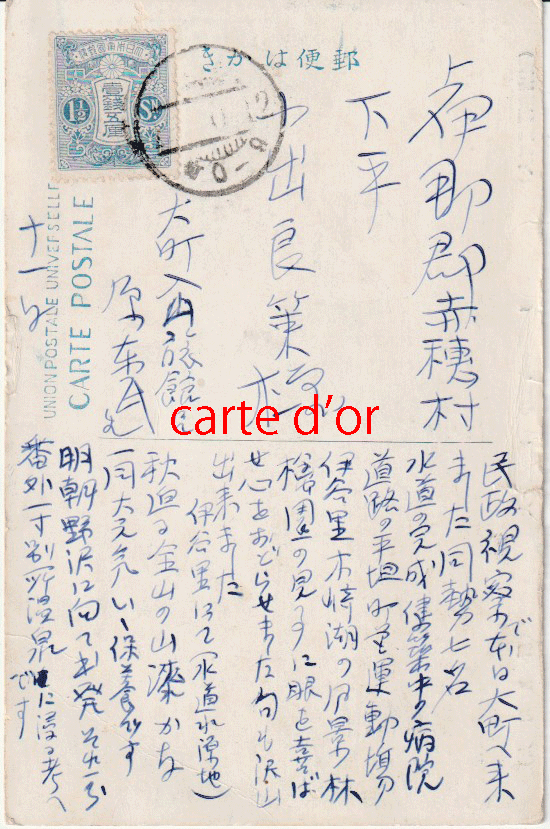 郵便はかき
壹錢五厘
1½
Sn.
UNION POSTALE UNIVERSELLE
CARTE POSTALE
上伊那郡赤穂村
下平
小出良策様
大町
旅館
十一日
carte d’or
民政視察で本日大町へ来
ました同勢七名
水道の完成建築中の病院
道路の平坦町営運動場
伊谷里木崎湖の風景林
檎園の見るに眼を喜ば
せ心をおどらせました句も沢山
出来ました
伊谷里にて(水道水源地)
秋迫る金山の山
一同大元気
明朝野沢に向て出発それから
番外一寸別所温泉に浸る考へ
です